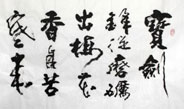 寶劍
鋒從磨礪
出梅花
香自苦
寒来